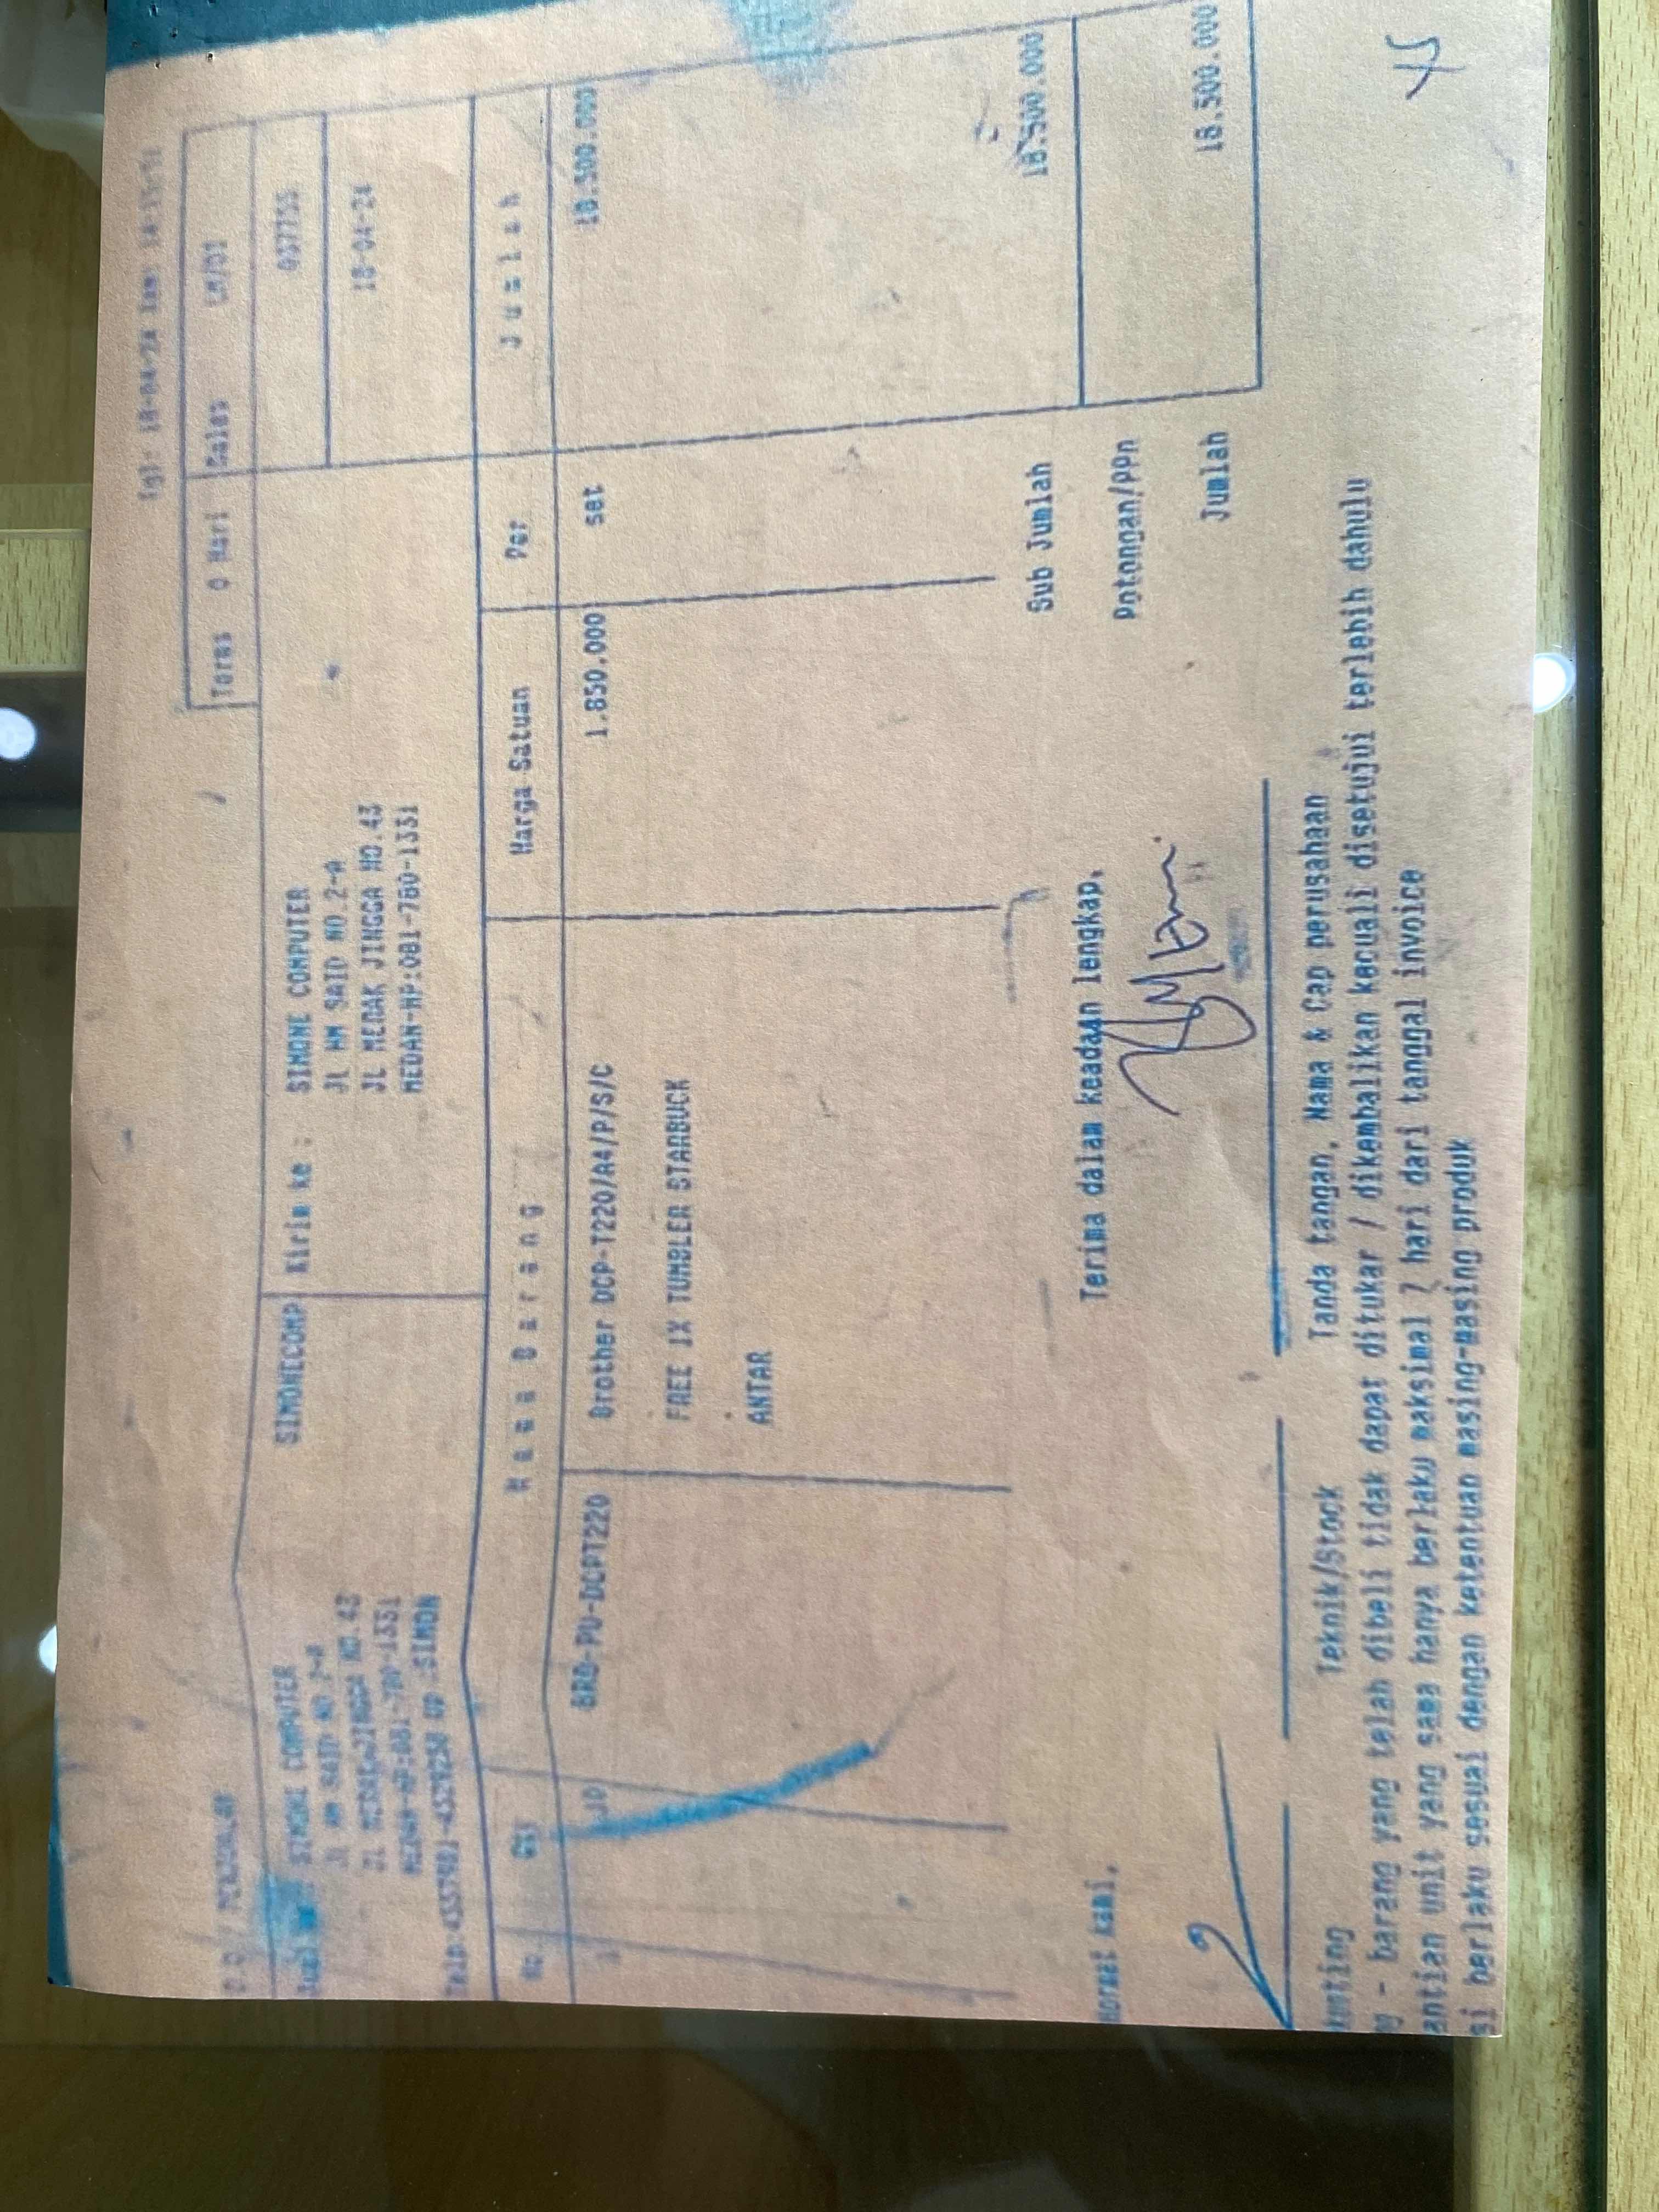 Tgl: 18-04-24 Jam:
Terms 0 Hari Sales LM/01
SIMONECOMP Kirim ke : SIMONE COMPUTER 037755
SIMONE COMPUTER
JL HM SAID NO.2-A
JL HM SAID NO.2-A 18-04-24
JL MERAK JINGGA NO.43
JL MERAK JINGGA NO.43
MEDAN-HP:081-760-1331
MEDAN-HP:081-760-1331
UP :SIMON
No Qty N a m a B a r a n g Harga Satuan Per J u m l a h
10 BRO-PU-DCPT220 Brother DCP-T220/A4/P/S/C 1.850.000 set 18.500.000
FREE 1X TUMBLER STARBUCK
ANTAR
Sub Jumlah 18.500.000
Hormat kami, Terima dalam keadaan lengkap,
Potongan/PPn
Jumlah 18.500.000
Teknik/Stock Tanda tangan, Nama & Cap perusahaan
- barang yang telah dibeli tidak dapat ditukar / dikembalikan kecuali disetujui terlebih dahulu
antian unit yang sama hanya berlaku maksimal 7 hari dari tanggal invoice
si berlaku sesuai dengan ketentuan masing-masing produk